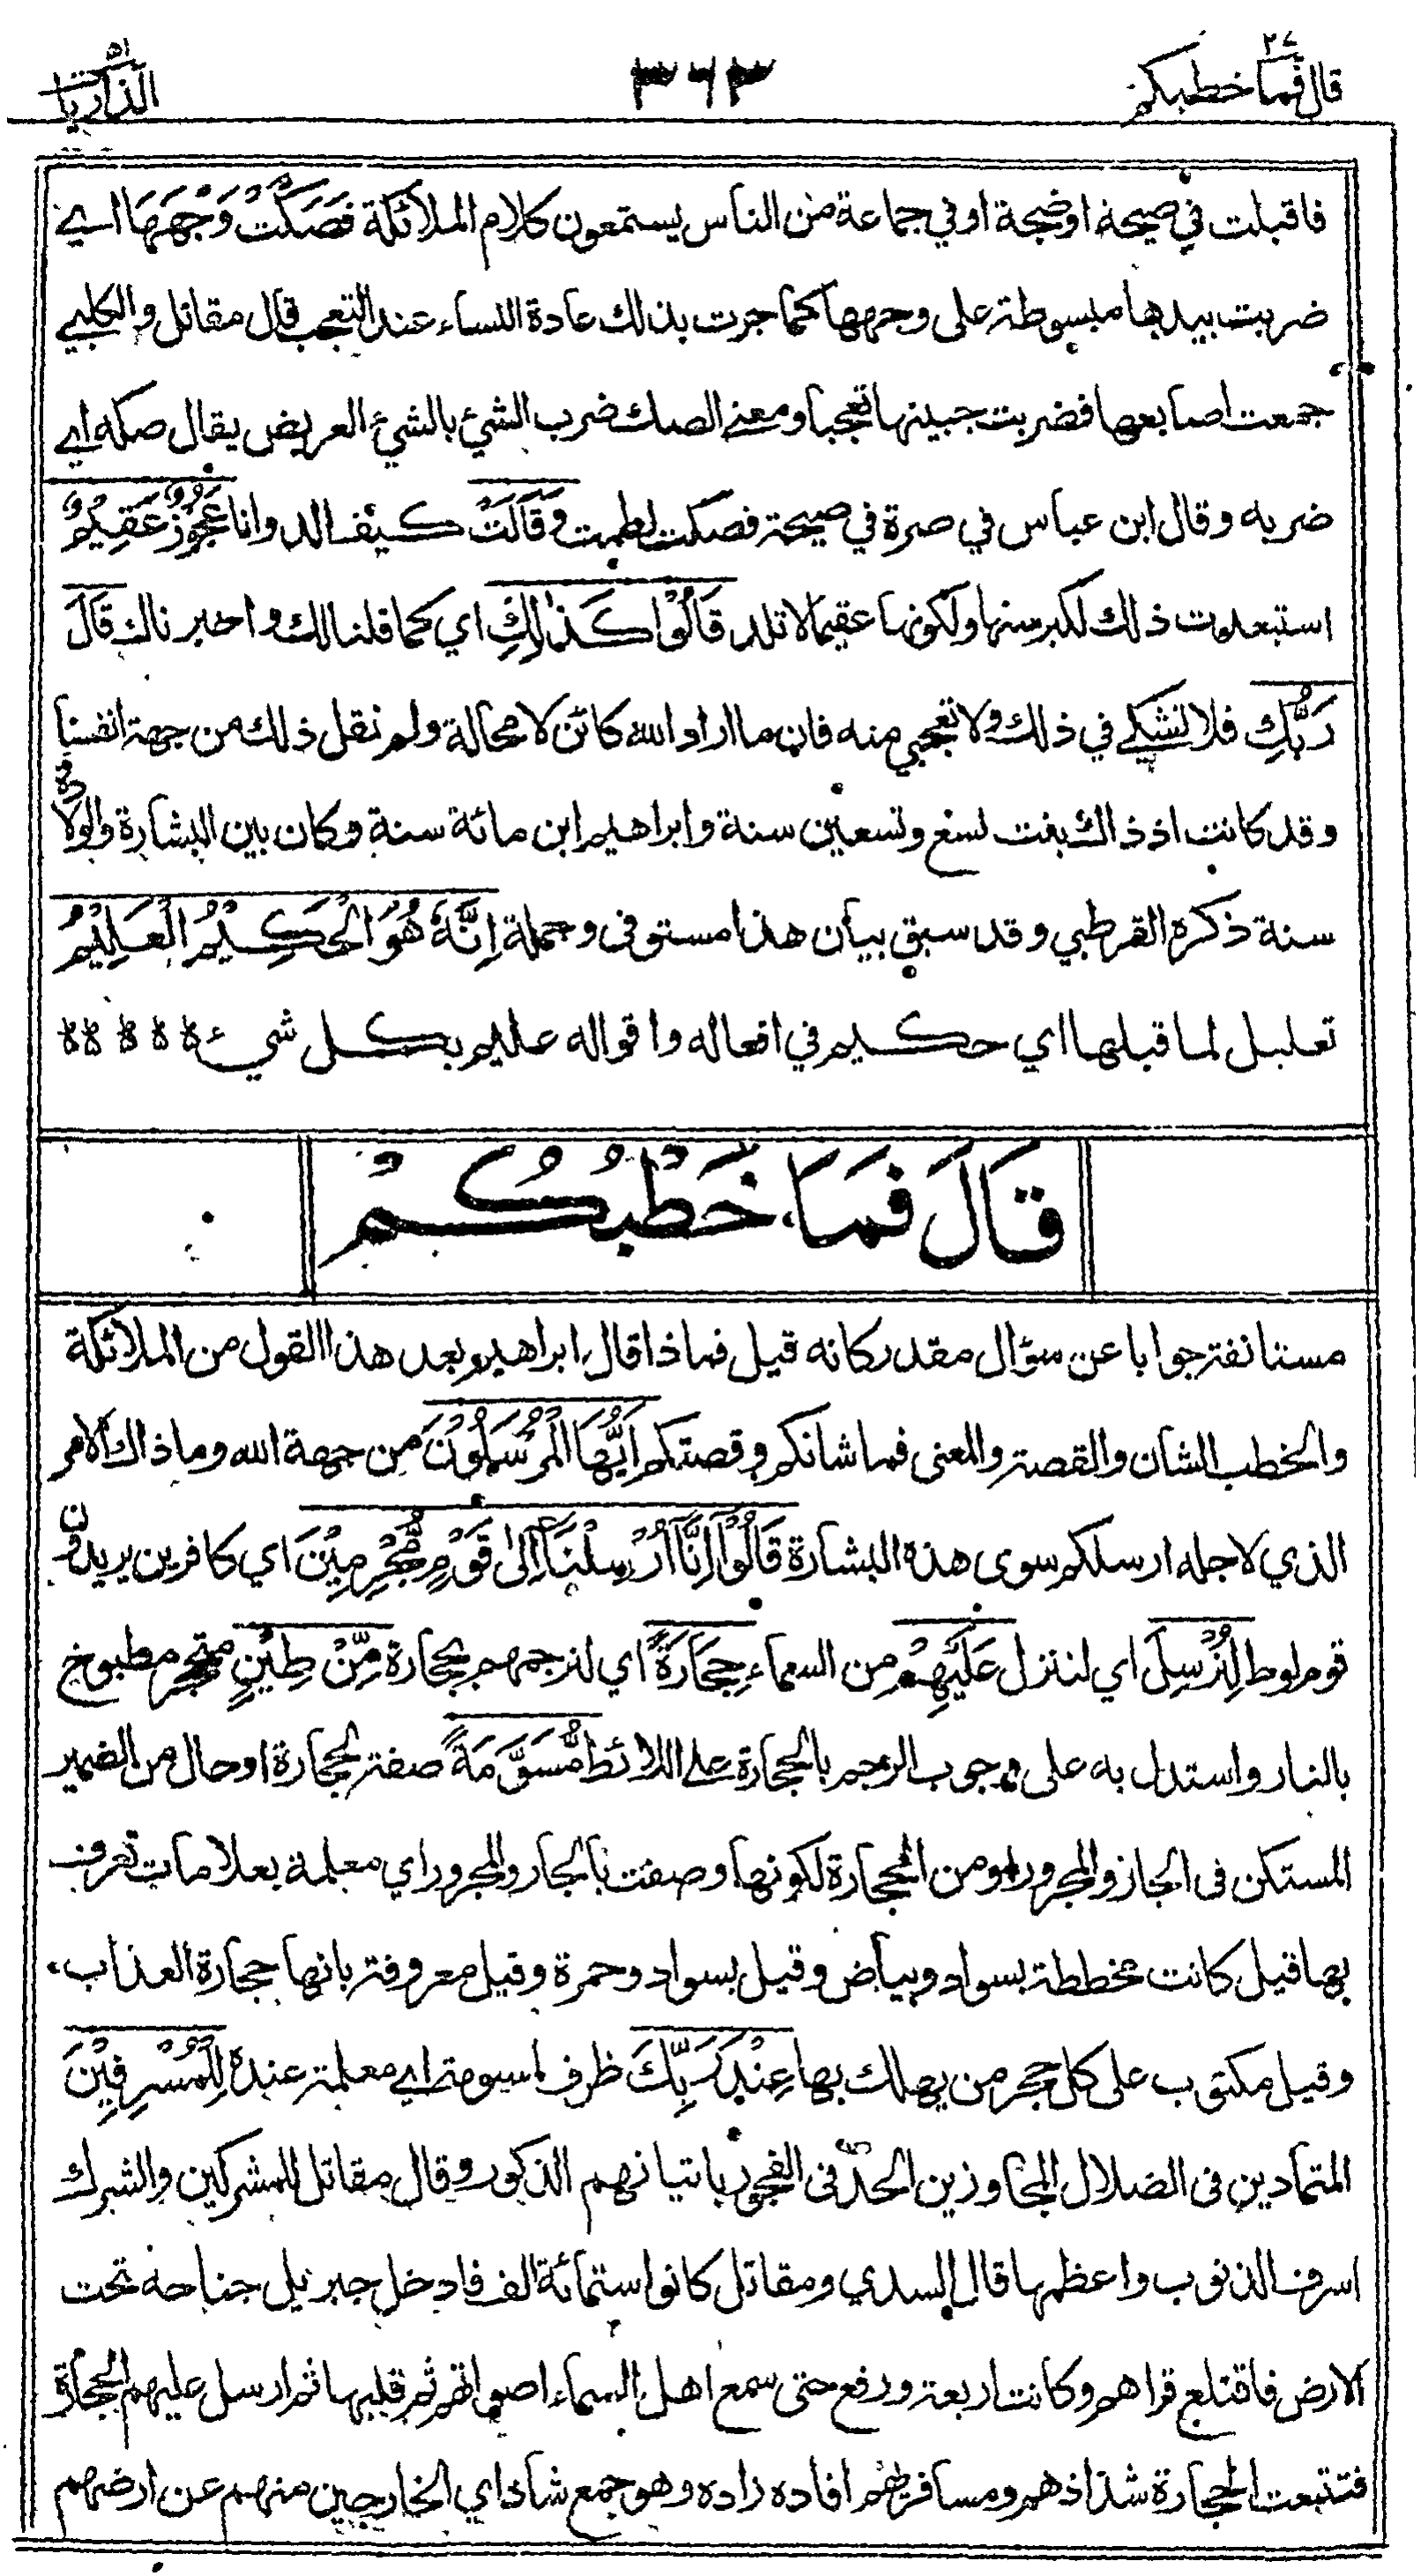 قال فما خطبكم ٢٧
٣٦٣
الذاريات ٥١
فاقبلت في صيحة اوضجة اوفي جماعة من الناس يستمعون كلام الملائكة فَصَكَّتْ وَجْهَهَا اي
ضربت بيدها مبسوطة على وجهها كما جرت بذلك عادة النساء عند التعجب قال مقاتل والكلبي
جمعت اصابعها فضربت جبينها تعجبا ومعنى الصك ضرب الشيء بالشيء العريض يقال صكه اي
ضربه وقال ابن عباس في صرة في صيحة فصكت لطمت وَقَالَتْ كيف الد وانا عَجُوْزٌ عَقِيْمٌ
استبعدت ذلك لكبر سنها ولكونها عقيما لا تلد قَالُوْا كَذٰلِكِ اي كما قلنا لك واخبرناك قَالَ
رَبُّكِ فلا تشكي في ذلك ولا تعجبي منه فان ما اراد الله كائن لا محالة ولم نقل ذلك من جهة انفسنا
وقد كانت اذ ذاك بنت تسع وتسعين سنة وابراهيم ابن مائة سنة وكان بين البشارة والولادة
سنة ذكره القرطبي وقد سبق بيان هذا مستوفى وجملة اِنَّهٗ هُوَ الْحَكِيْمُ الْعَلِيْمُ
تعليل لما قبلها اي حكيم في افعاله واقواله عليم بكل شيء
قَالَ فَمَا خَطْبُكُمْ
مستانفة جوابا عن سؤال مقدر كانه قيل فماذا قال ابراهيم بعد هذا القول من الملائكة
والخطب الشان والقصة والمعنى فما شانكم وقصتكم اَيُّهَا الْمُرْسَلُوْنَ من جهة الله وما ذاك الامر
الذي لاجله ارسلكم سوى هذه البشارة قَالُوْٓا اِنَّآ اُرْسِلْنَآ اِلٰى قَوْمٍ مُّجْرِمِيْنَ اي كافرين يريدون
قوم لوط لِنُرْسِلَ اي لننزل عَلَيْهِمْ من السماء حِجَارَةً اي لنرجمهم بحجارة مِّنْ طِيْنٍ متحجر مطبوخ
بالنار واستدل به على وجوب الرجم بالحجارة على اللائط مُّسَوَّمَةً صفة لحجارة او حال من الضمير
المستكن في الجار والمجرور او من الحجارة لكونها وصفت بالجار والمجرور اي معلمة بعلامات تعرف
بها قيل كانت مخططة بسواد وبياض وقيل بسواد وحمرة وقيل معروفة بانها حجارة العذاب
وقيل مكتوب على كل حجر من يهلك بها عِنْدَ رَبِّكَ ظرف لمسومة اي معلمة عنده لِلْمُسْرِفِيْنَ
المتمادين في الضلال المجاوزين الحد في الفجور باتيانهم الذكور وقال مقاتل للمشركين والشرك
اسرف الذنوب واعظمها قال السدي ومقاتل كانوا ستمائة الف فادخل جبريل جناحه تحت
الارض فاقتلع قراهم وكانت اربعة ورفع حتى سمع اهل السماء اصواتهم ثم قلبها ثم ارسل عليهم الحجارة
فتتبعت الحجارة شذاذهم ومسافريهم افاده زاده وهو جمع شاذ اي الخارجين منهم عن ارضهم